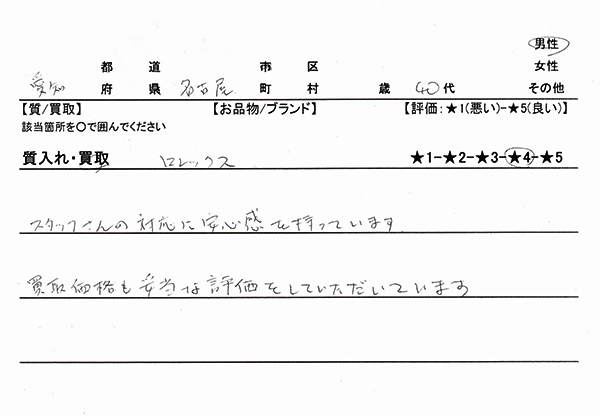 男性
都 道 市 区 女性
愛知 府 県 名古屋 町 村 歳 40代 その他
【質/買取】 【お品物/ブランド】 【評価：★1(悪い)-★5(良い)】
該当箇所を〇で囲んでください
質入れ・買取 ロレックス ★1-★2-★3-★4-★5
スタッフさんの対応に安心感を持っています
買取価格も妥当な評価をしていただいています